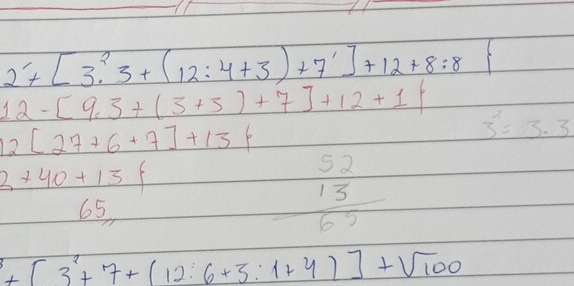 2 + [3² . 3 + (12 : 4 + 3) + 7] + 12 + 8 : 8 }
12 - [9.3 + (3 + 3) + 7] + 12 + 1 }
12 [27 + 6 + 7] + 13 }
3² = 3.3
2 + 40 + 13 }
65
52
13
65
+ [3² + 7 + (12 : 6 + 3 : 1 + 4)] + √100